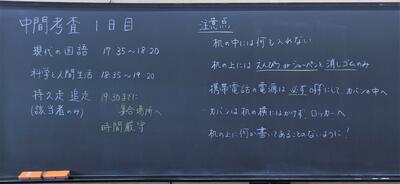 中間考査 1日目
現代の国語 17:35〜18:20
科学と人間生活 18:35〜19:20
持久走追走 19:30までに
(該当者のみ) 集合場所へ
時間厳守
注意点
・机の中には何も入れない
・机の上にはえんぴつorシャーペンと消しゴムのみ
・携帯電話の電源は必ずOFFにして、カバンの中へ
・カバンは机の横にはかけず、ロッカーへ
・机の上に何か書いてあることのないように!